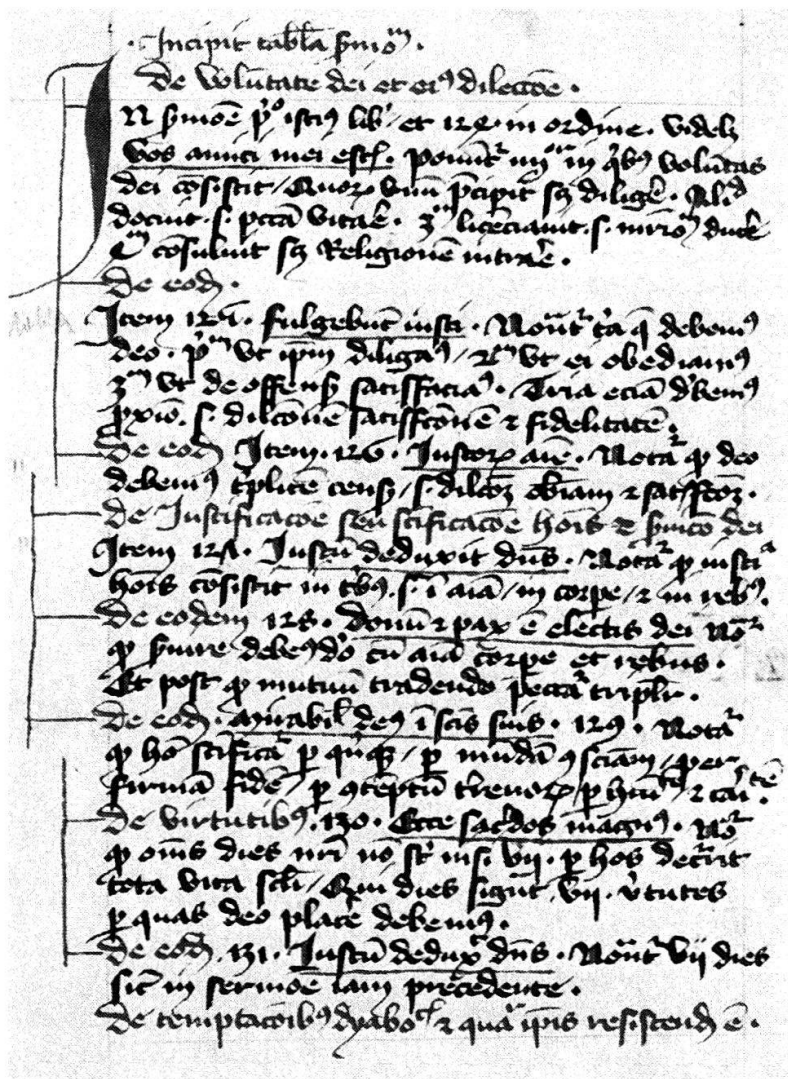 Incipit tabl̄a s̄mo&#x303;m.
De volūtate dei et ei⁹ dilecc̄oe.
In s̄mōe p̊° isti⁹ lib̄ / et 124 in ordine. videlꝫ
vos amici mei est̄. ponūt̄ iiii^or in q̄b⁹ volūtas
dei cōsistit / Quoꝝ vnū p̄cipit sꝫ diligē. Aliᵈ
docuit .s. pctā vitaē. 3^m licēciauit .s. mr̄io^m ducē
4^m cōsuluit sꝫ Religionē intraē.
De eodꝫ.
Item 125. fulgebūt iusti. Nōt̄ t̄ia q̄ debem⁹
deo. p̊^m vt ip̄m diligam⁹ / 2^m vt ei obediam⁹
3^m vt de offens̄ satisfacia⁹. Tria eciā dēbem⁹
p̄xiō .s. dilc̄onē satisfc̄onē ⁊ fidelitatē.
De eodꝫ Item. 126. Iustoꝝ aīe. Notā ꝙ deo
debem⁹ t̄plicē cens̄ / .s. dilc̄oꝫ ob̄iam ⁊ satisfc̄oꝫ.
De Iustificac̄oe seu sc̄ificac̄oe hōis ⁊ s̄uic̄o dei
Item 127. Iustū deduxit dn̄s. Notā ꝙ iusti^a
hōis cōsistit in t̄b⁹ .s. ī aīa / in corpe / ⁊ in reb⁹.
De eodem 128. Donū ⁊ pax ē electis dei Nō^r
ꝙ s̄uire debem⁹ dō cū aīa corpe et rebus.
Et post ꝙ mutuū tradendo peccā tripl̄r.
De eodꝫ. Mirabil̄ de⁹ ī sc̄is suis. 129. Notā
ꝙ hō sc̄ificā ꝑ qn̄qꝫ / ꝑ mūdā ꝯsciam / per
firmā fidē / ꝑ ꝯtēptū t̄renoꝝ ꝑ hūi^tē ⁊ cāi^tē.
De virtutib⁹. 130. Ecce sac̄dos magn⁹. Nō^r
ꝙ om̄s dies nr̄i nō st̄ nisi vii. ꝑ hos decūrit
tota vita sc̄li / Qui dies sign̄t vii. v̄tutes
ꝑ quas deo placē debem⁹.
De eodꝫ. 131. Iustū dedux̄ dn̄s. Nōt̄ vii dies
sic̄ in sermōe iam precedente.
De temptac̄oib⁹ dyabo^cis ⁊ quā ip̄is resistendꝫ ē.